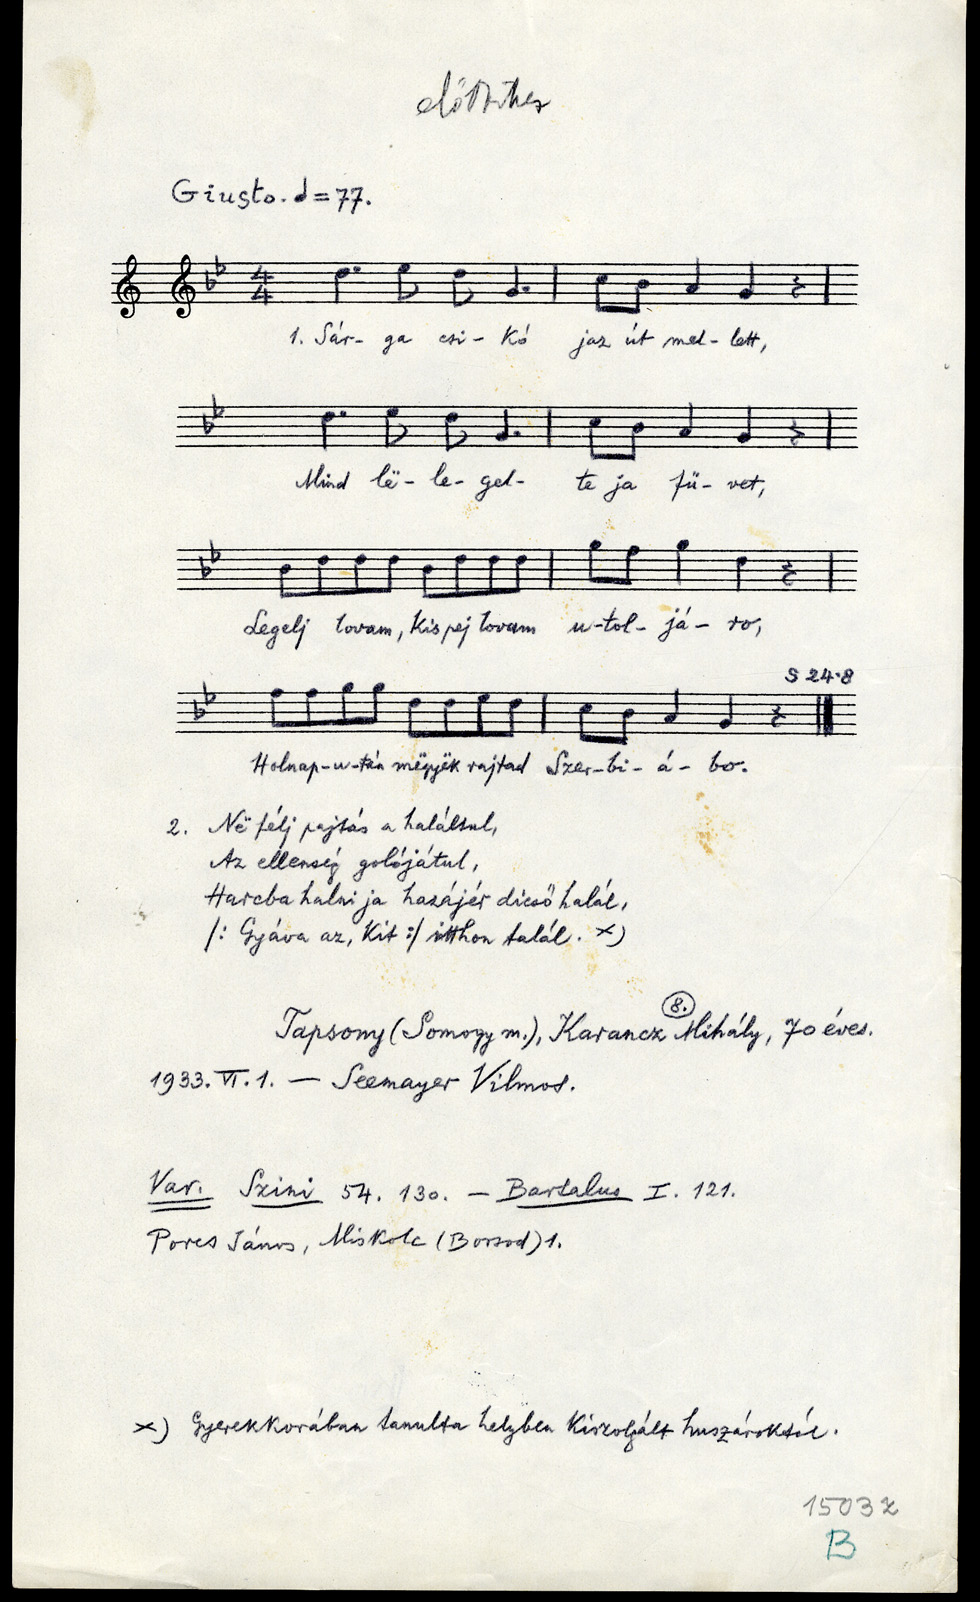 Giusto. ♩=77.
4
4
1. Sár- ga csi- kó jaz út mel- lett,
Mind lë- le- gel- te ja fü- vet,
Legelj lovam, kis pej lovam u-tol- já- ro,
S 24·8
Holnap-u-tán mëgyëk rajtad Szer-bi- á- bo.
2. Në félj pajtás a haláltul,
Az ellenség golójátul,
Harcba halni ja hazájér dicső halál,
/: Gyáva az, kit :/ itthon talál. x)
8.
Tapsony (Somogy m.), Karancz Mihály, 70 éves.
1933. VI. 1. — Seemayer Vilmos.
Var. Szini 54. 130. — Bartalus I. 121.
Porcs János, Miskolc (Borsod) 1.
x) Gyerekkorában tanulta helyben kiszolgált huszároktól.
1503
B